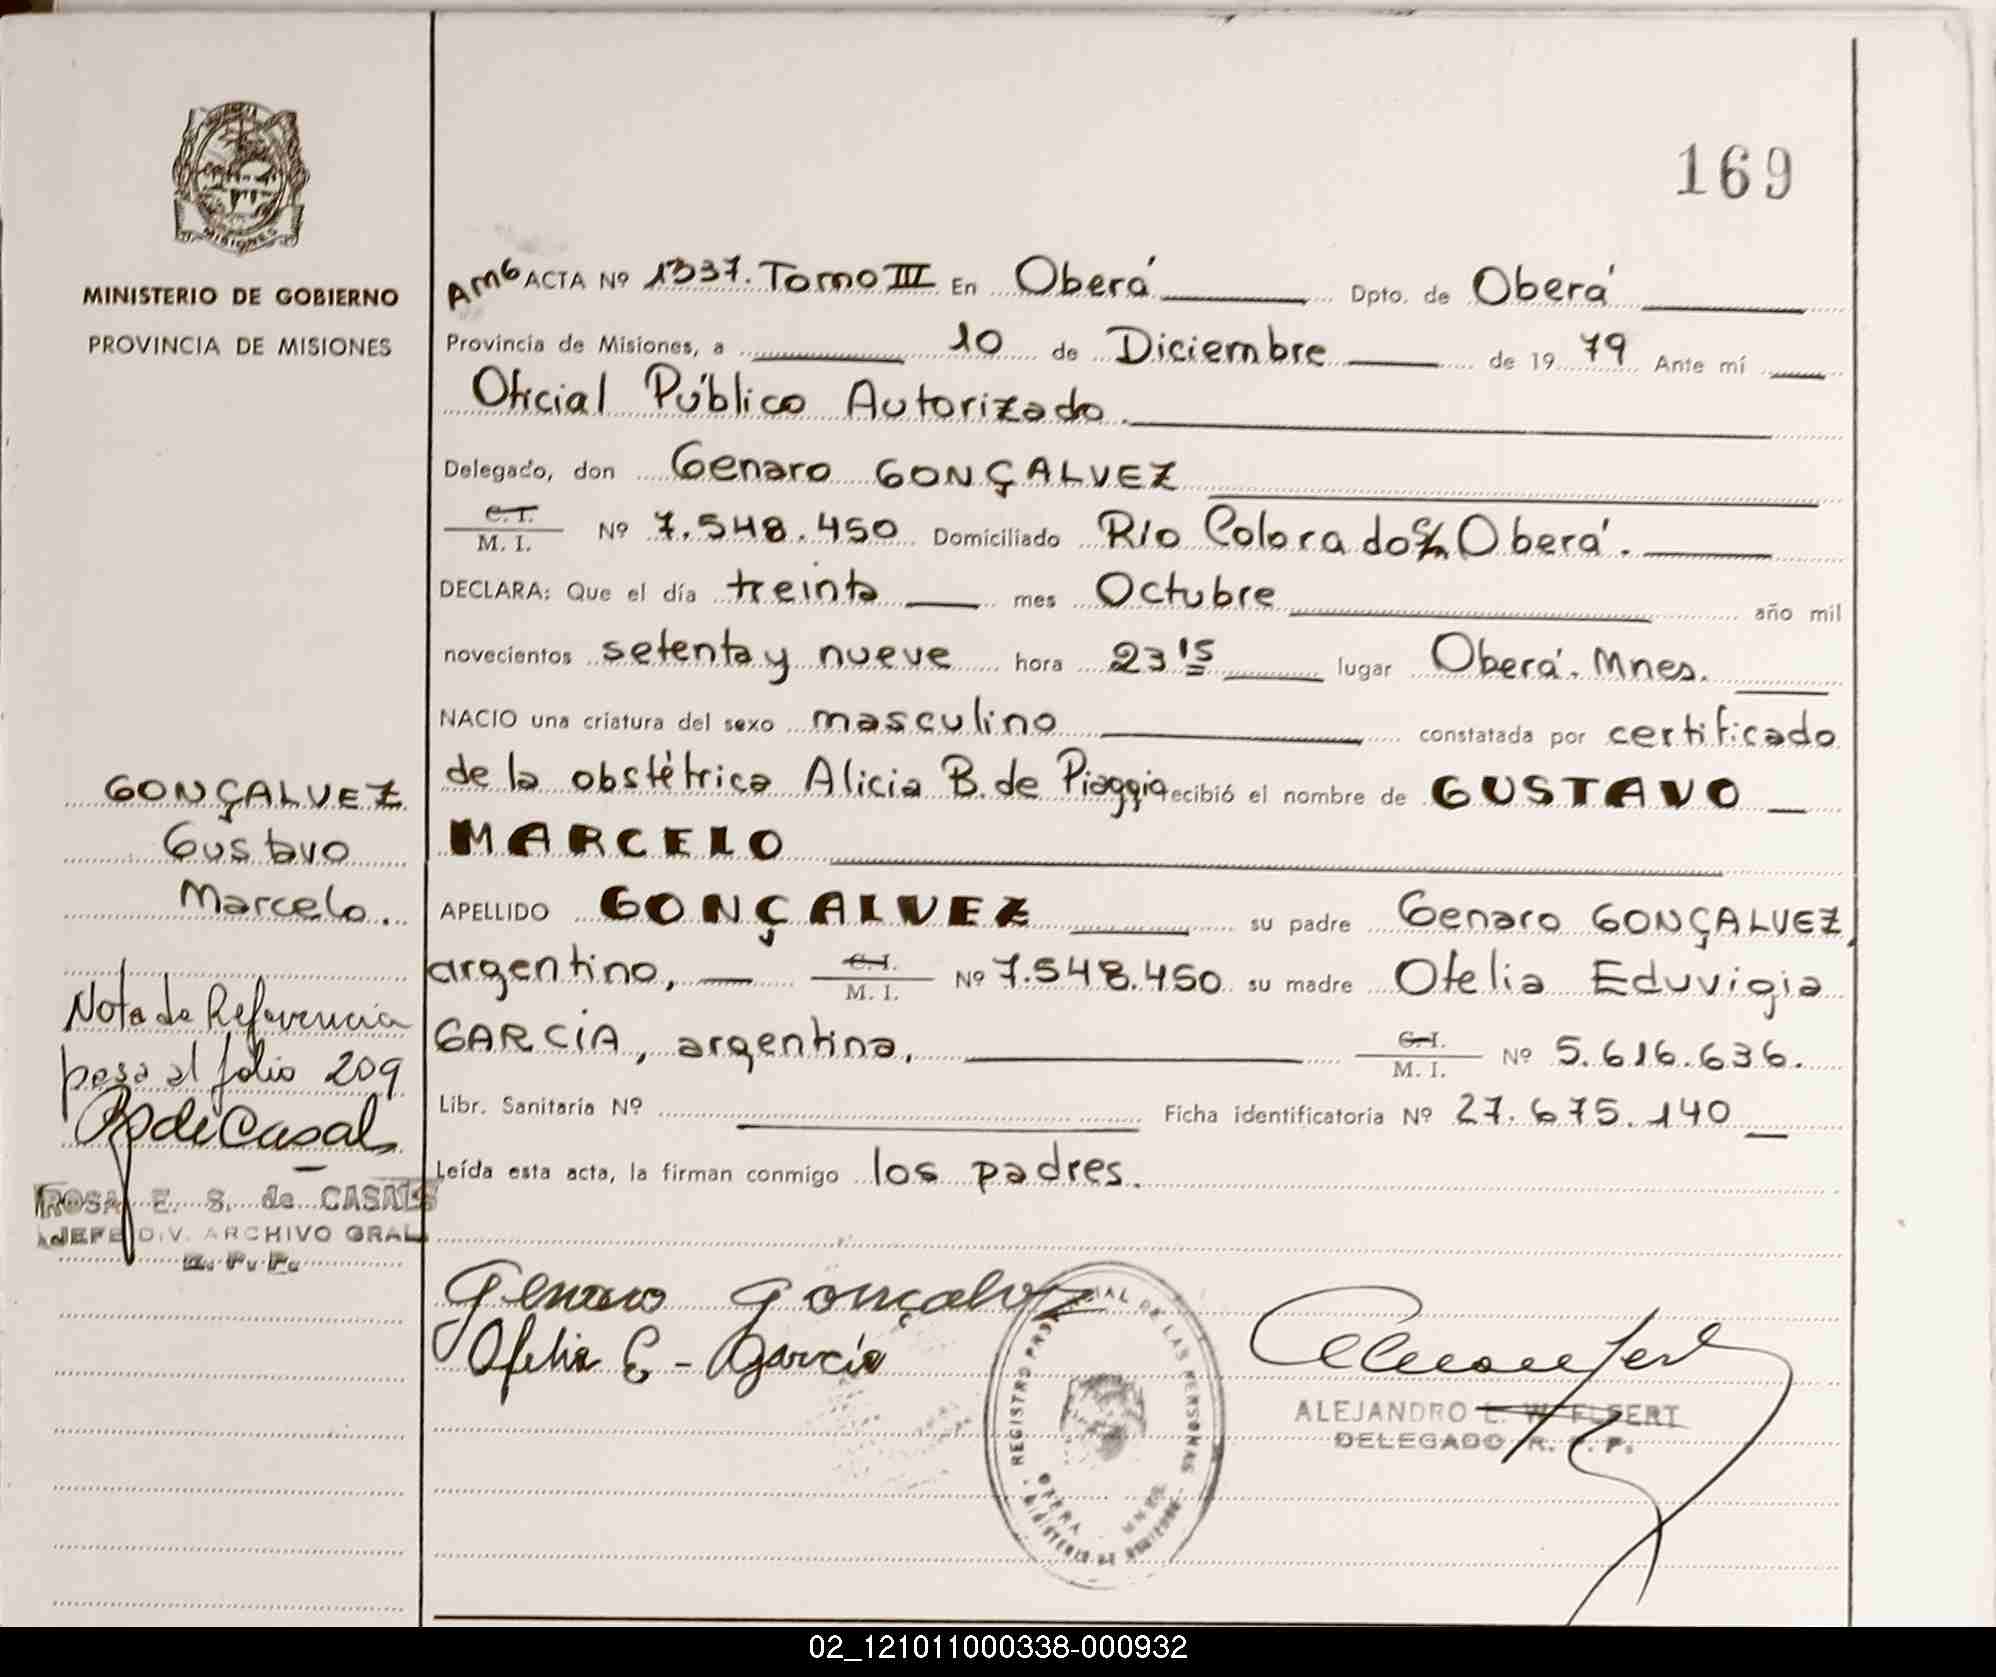 169
MISIONES
MINISTERIO DE GOBIERNO
PROVINCIA DE MISIONES
GONÇALVEZ
Gustavo
Marcelo.
Nota de Referencia
pasa al folio 209
RdeCasals
ROSA E. S. de CASALS
JEFE DIV. ARCHIVO GRAL
R. P. P.
ACTA Nº 1337. Tomo III En Oberá Dpto. de Oberá
Provincia de Misiones, a 10 de Diciembre de 19 79 Ante mí
Oficial Público Autorizado.
Delegado, don Genaro GONÇALVEZ
C. I.
M. I. Nº 7.548.450 Domiciliado Río Colorado Oberá.
DECLARA: Que el día treinta mes Octubre año mil
novecientos setenta y nueve hora 23 15 lugar Oberá. Mnes.
NACIO una criatura del sexo masculino constatada por certificado
de la obstétrica Alicia B. de Piaggio recibió el nombre de GUSTAVO
MARCELO
APELLIDO GONÇALVEZ su padre Genaro GONÇALVEZ,
argentino, C. I.
M. I. Nº 7.548.450 su madre Ofelia Eduvigia
GARCÍA, argentina, C. I.
M. I. Nº 5.616.636.
Libr. Sanitaria Nº Ficha identificatoria Nº 27.675.140
Leída esta acta, la firman conmigo los padres.
Genaro Gonçalvez
Ofelia E - Garcia
REGISTRO PROVINCIAL DE LAS PERSONAS
OBERA MNES.
MINISTERIO DE GOBIERNO
ALEJANDRO L. W. ELFERT
DELEGADO R. P. P.
02_121011000338-000932